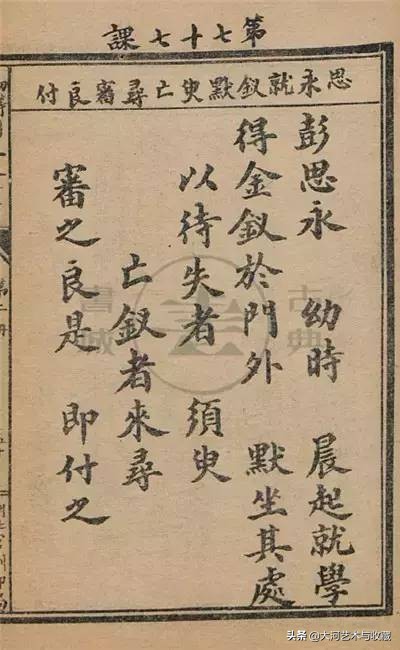 第七十七課
思永就釵默臾亡尋審良付
彭思永 幼時 晨起就學
得金釵於門外 默坐其處
以待失者 須臾
亡釵者來尋
審之良是 即付之
第二册
古典書城
头条 @大河艺术与收藏